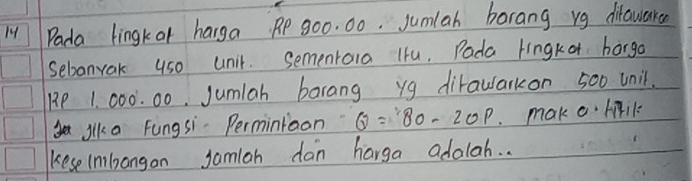 14 Pada tingkat harga RP 900.00. Jumlah barang yg ditawarkan
sebanyak 450 unit. Sementara itu. Pada tingkat harga
RP 1.000.00. Jumlah barang yg ditawarkan 500 unit.
jika Fungsi Permintaan Q = 80 - 20P. maka titik
keseimbangan jamlah dan harga adalah..